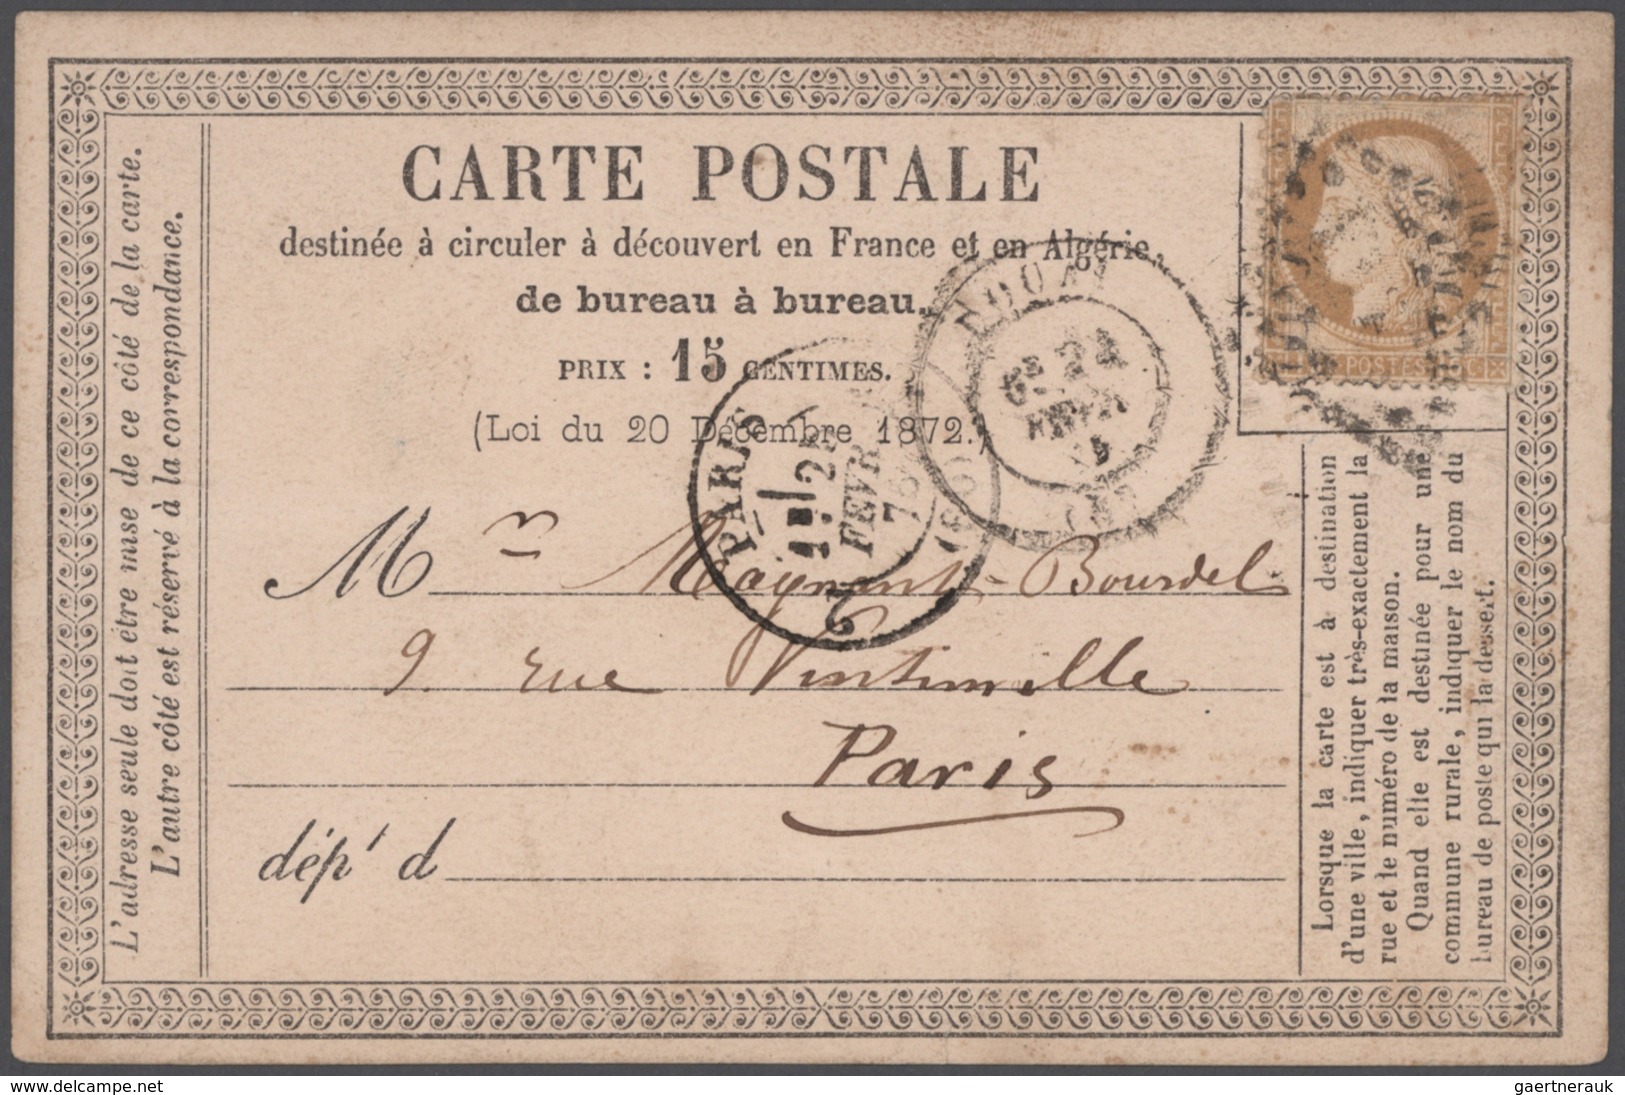 CARTE POSTALE
destinée à circuler à découvert en France et en Algérie,
de bureau à bureau.
PRIX : 15 CENTIMES.
(Loi du 20 Décembre 1872.)
L'adresse seule doit être mise de ce côté de la carte.
L'autre côté est réservé à la correspondance.
DOUAI
PARIS
FEVR
(60)
POSTES
Mr Magnant-Bourdel
9. rue Vintimille
Paris
dépt d
Lorsque la carte est à destination
d'une ville, indiquer très-exactement la
rue et le numéro de la maison.
Quand elle est destinée pour une
commune rurale, indiquer le nom du
bureau de poste qui la dessert.
www.delcampe.net
gaertnerauk